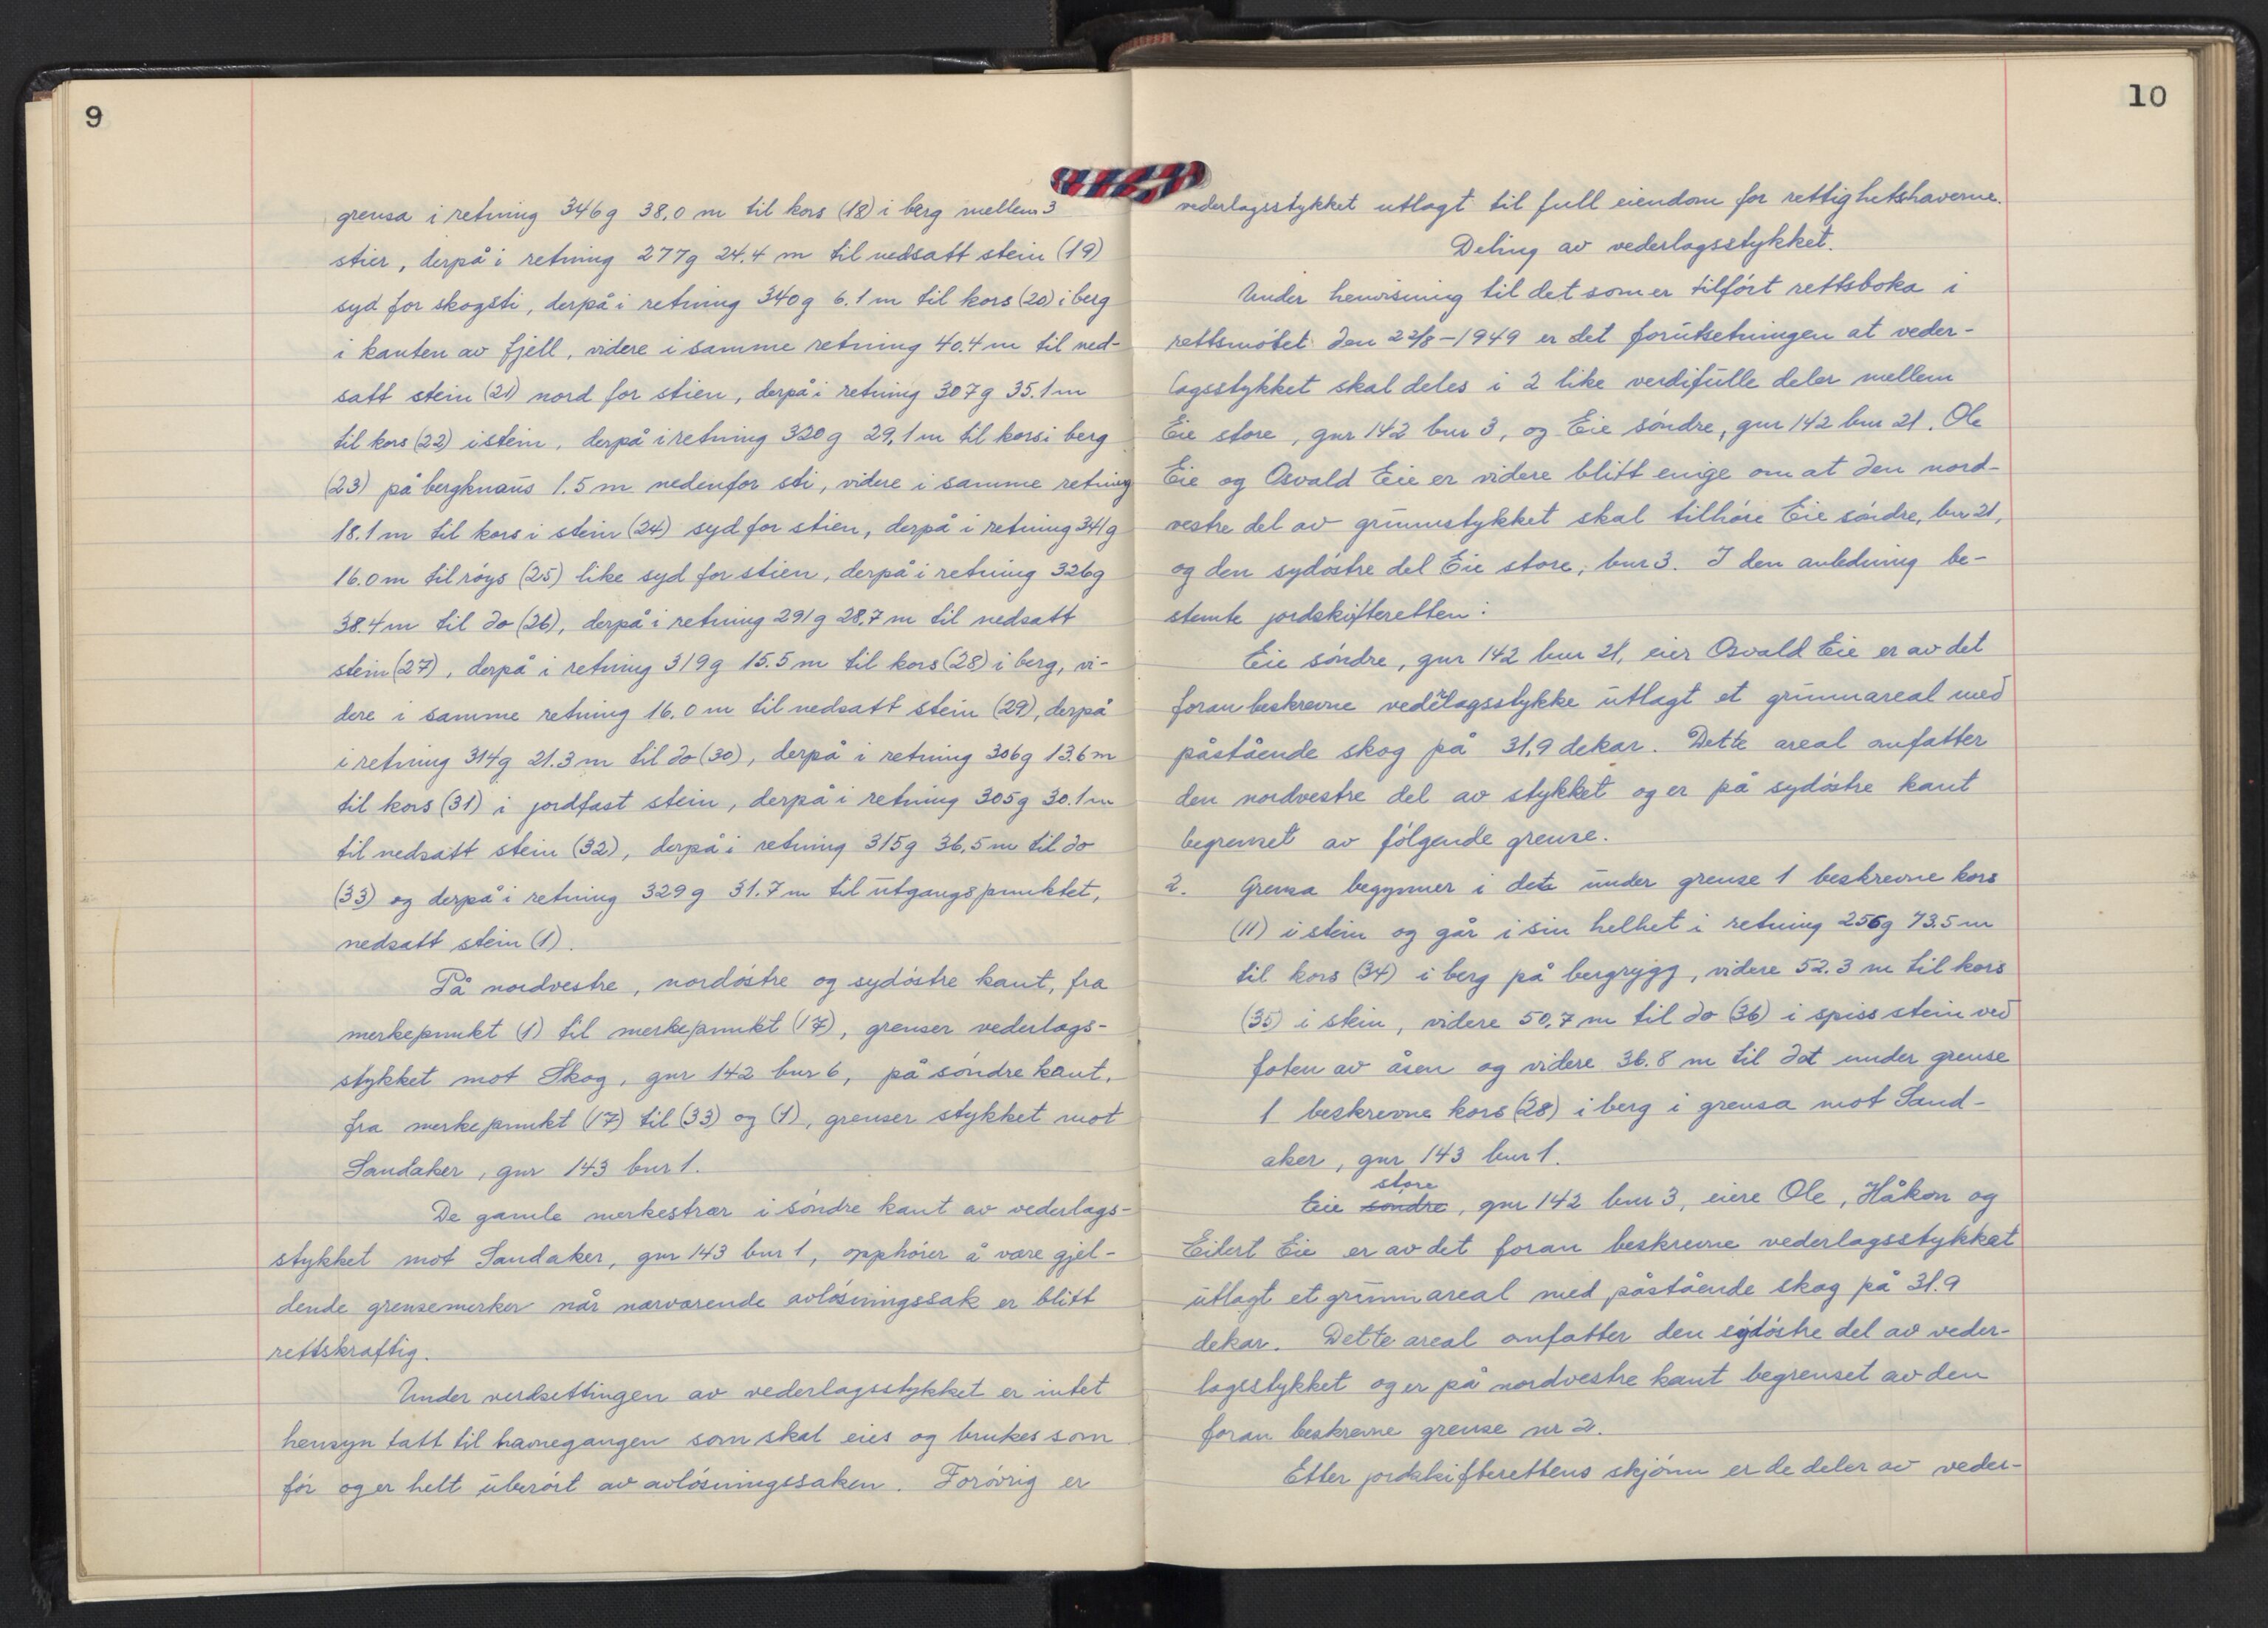 9
grensa i retning 346g 38,0 m til kors (18) i berg mellem 3
stier, derpå i retning 277g 24.4 m til nedsatt stein (19)
syd for skogsti, derpå i retning 340g 6.1 m til kors (20) i berg
i kanten av fjell, videre i samme retning 40.4 m til ned-
satt stein (21) nord for stien, derpå i retning 307g 35.1 m
til kors (22) i stein, derpå i retning 320g 29,1 m til kors i berg
(23) på bergknaus 1.5 m nedenfor sti, videre i samme retning
18.1 m til kors i stein (24) syd for stien, derpå i retning 341g
16.0 m til röys (25) like syd for stien, derpå i retning 326g
38.4 m til do (26), derpå i retning 291g 28,7 m til nedsatt
stein (27), derpå i retning 319g 15.5 m til kors (28) i berg, vi-
dere i samme retning 16.0 m til nedsatt stein (29), derpå
i retning 314g 21.3 m til do (30), derpå i retning 306g 13.6 m
til kors (31) i jordfast stein, derpå i retning 305g 30.1 m
til nedsatt stein (32), derpå i retning 315g 36,5 m til do
(33) og derpå i retning 329g 31.7 m til utgangspunktet,
nedsatt stein (1).
På nordvestre, nordöstre og sydöstre kant, fra
merkepunkt (1) til merkepunkt (17), grenser vederlags-
stykket mot Skog, gnr 142 bnr 6, på söndre kant,
fra merkepunkt (17) til (33) og (1), grenser stykket mot
Sandaker, gnr 143 bnr 1.
De gamle merkestrær i söndre kant av vederlags-
stykket mot Sandaker, gnr 143 bnr 1, opphörer å være gjel-
dende grensemerker når nærværende avlösningssak er blitt
rettskraftig.
Under verdsettingen av vederlagsstykket er intet
hensyn tatt til havnegangen som skal eies og brukes som
för og er helt uberört av avlösningssaken. Forövrig er
10
vederlagsstykket utlagt til full eiendom for rettighetshaverne.
Deling av vederlagsstykket.
Under henvisning til det som er tilfört rettsboka i
rettsmötet den 22/8-1949 er det forutsetningen at veder-
lagsstykket skal deles i 2 like verdifulle deler mellem
Eie store, gnr 142 bnr 3, og Eie söndre, gnr 142 bnr 21. Ole
Eie og Osvald Eie er videre blitt enige om at den nord-
vestre del av grunnstykket skal tilhöre Eie söndre, bnr 21,
og den sydöstre del Eie store, bnr 3. I den anledning be-
stemte jordskifteretten:
Eie söndre, gnr 142 bnr 21, eier Osvald Eie er av det
foran beskrevne vederlagsstykke utlagt et grunnareal med
påstående skog på 31,9 dekar. Dette areal omfatter
den nordvestre del av stykket og er på sydöstre kant
begrenset av fölgende grense.
2. Grensa begynner i det under grense 1 beskrevne kors
(11) i stein og går i sin helhet i retning 256g 73.5 m
til kors (34) i berg på bergrygg, videre 52.3 m til kors
(35) i stein, videre 50,7 m til do (36) i spiss stein ved
foten av åsen og videre 36.8 m til det under grense
1 beskrevne kors (28) i berg i grensa mot Sand-
aker, gnr 143 bnr 1.
store
Eie söndre, gnr 142 bnr 3, eiere Ole, Håkon og
Eilert Eie er av det foran beskrevne vederlagsstykket
utlagt et grunnareal med påstående skog på 31.9
dekar. Dette areal omfatter den sydöstre del av veder-
lagsstykket og er på nordvestre kant begrenset av den
foran beskrevne grense nr 2.
Etter jordskifterettens skjönn er de deler av veder-